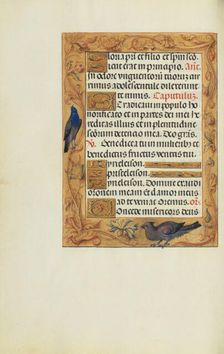 Gloria patri et filio et spiri. sco.
Sicut erat in principio. Añ.
In odore unguentorum tuorum cur
rimus adolescentule dilexerunt
te nimis. Capitulum.
Et radicavi in populo ho
norificato et in parte dei mei he
reditas illius et in plenitudine
sanctorum detentio mea. Deo grãs.
V. Benedicta tu in mulieribus et
benedictus fructus ventris tui.
Kyrieleison.
Christeleison.
Kyrieleison. Domine exaudi
orationem meam et clamor meus
ad te veniat. Oremus. Or.
Concede misericors deus